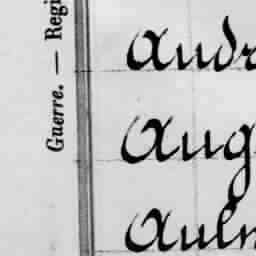 Guerre. — Regi
Andr
Aug
Auln